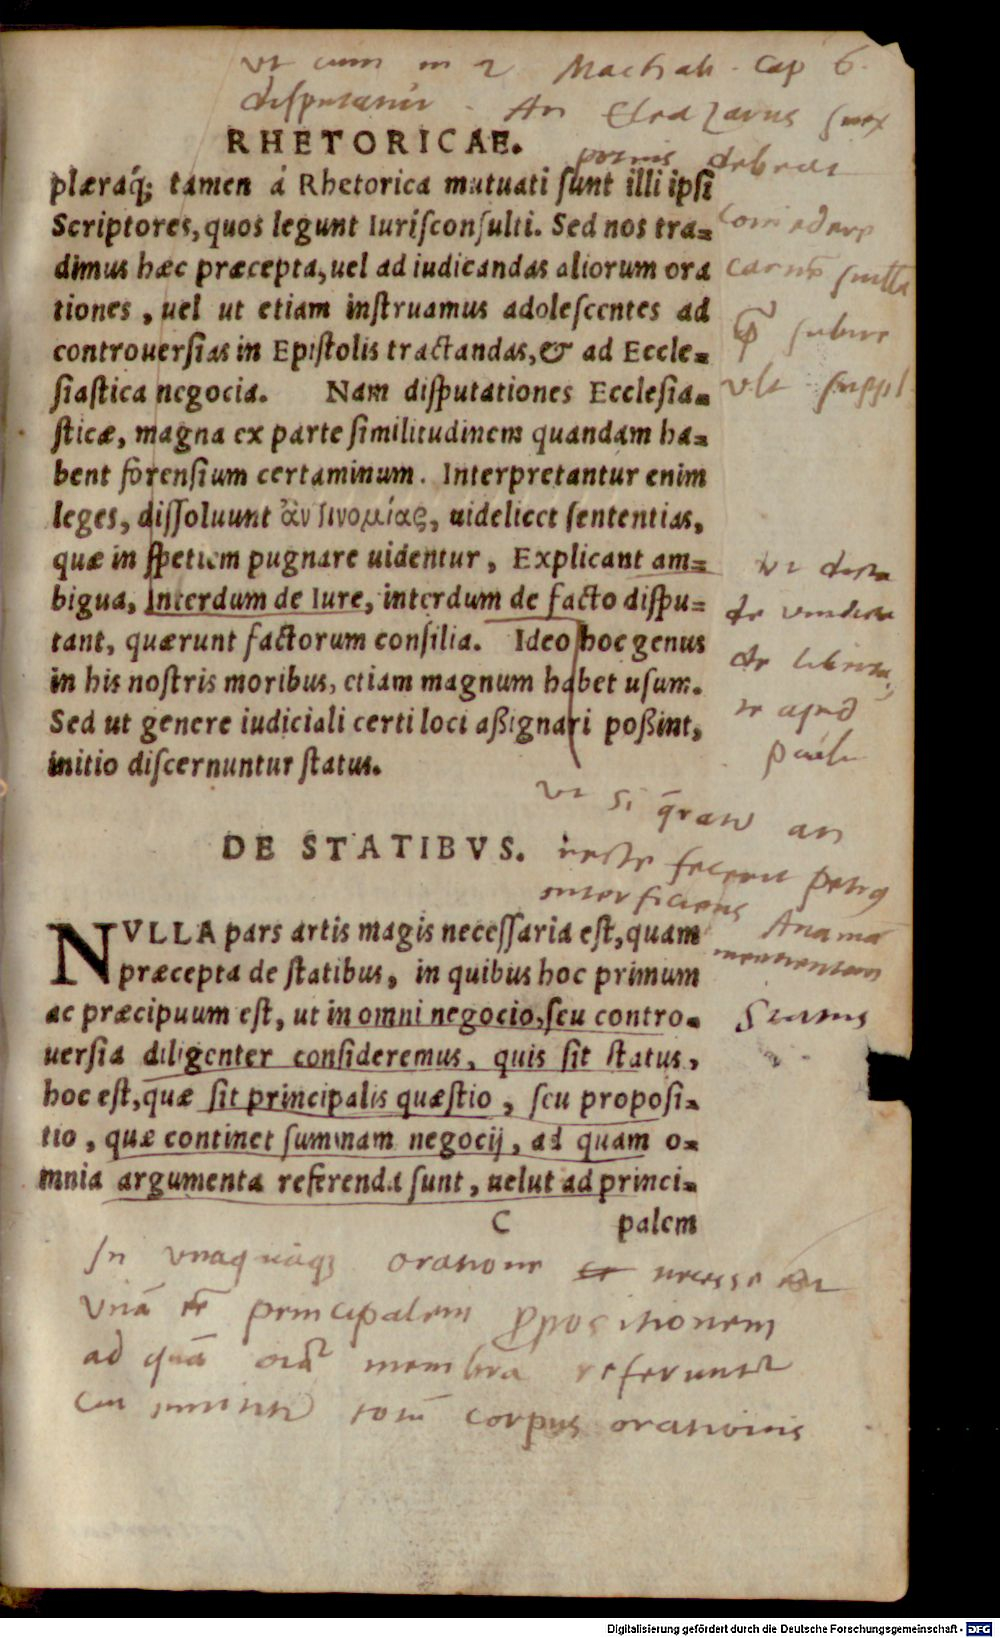 ut cum in 2 Machab. Cap 6.
disputatur. An Eleazarus senex
RHETORICAE.
potius debeat
plæraq́; tamen á Rhetorica mutuati ſunt illi ipſi
Scriptores, quos legunt Iuriſconſulti. Sed nos tra=
comedere
dimus hæc præcepta, uel ad iudicandas aliorum ora
carnē suillā
tiones, uel ut etiam inſtruamus adoleſcentes ad
controuerſias in Epiſtolis tractandas, & ad Eccle=
ſiaſtica negocia. Nam diſputationes Eccleſia=
ſticæ, magna ex parte ſimilitudinem quandam ha=
bent forenſium certaminum. Interpretantur enim
leges, diſſoluunt ἀντινομίας, uidelicet ſententias,
quæ in ſpetiem pugnare uidentur, Explicant am=
bigua, Interdum de Iure, interdum de facto diſpu=
tant, quærunt factorum conſilia. Ideo hoc genus
in his noſtris moribus, etiam magnum habet uſum.
Sed ut genere iudiciali certi loci aßignari poßint,
initio diſcernuntur ſtatus.
ut si q̄rat an
DE STATIBVS.
recte fecerit petrus
interficiens Anania
mentientem
NVLLA pars artis magis neceſſaria eſt, quam
præcepta de ſtatibus, in quibus hoc primum
ac præcipuum eſt, ut in omni negocio, ſeu contro=
Status
uerſia diligenter conſideremus, quis ſit ſtatus,
hoc eſt, quæ ſit principalis quæſtio, ſeu propoſi=
tio, quæ continet ſummam negocij, ad quam o=
mnia argumenta referenda ſunt, uelut ad princi=
C palem
In unaquaq; oratione necesse est
unā principalem ꝓpositionem
ad quā oīa membra referuntur
totū corpus orationis
Digitalisierung gefördert durch die Deutsche Forschungsgemeinschaft - DFG